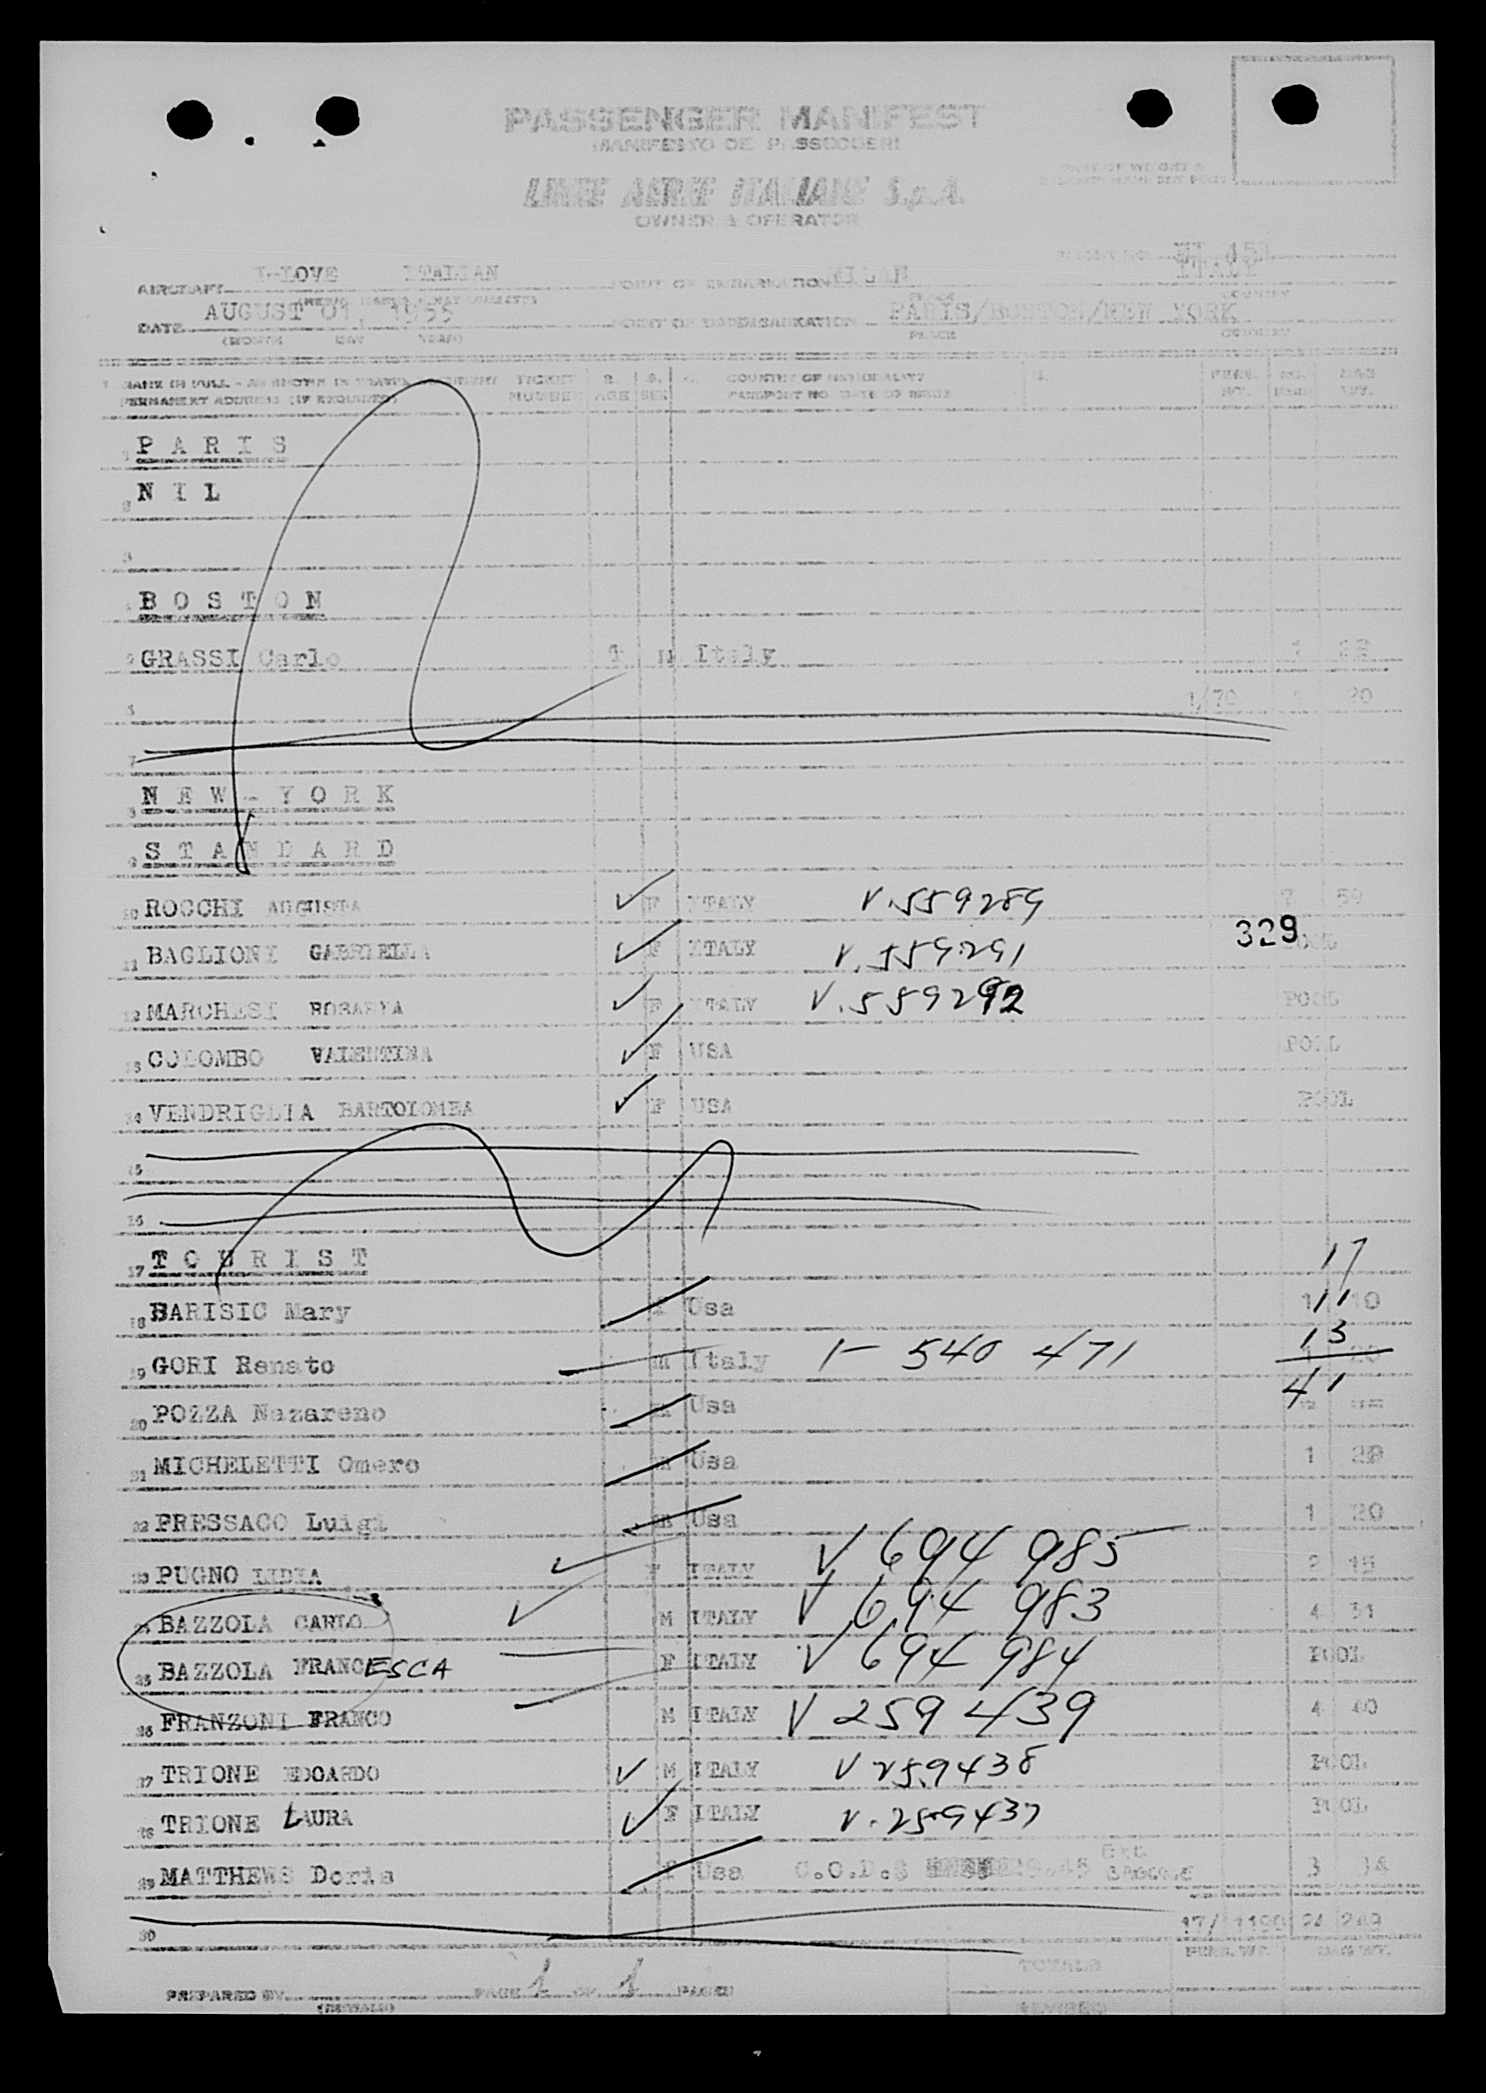 PASSENGER MANIFEST
MANIFESTO DE PASSEGGERI
LINEE AEREE ITALIANE S.p.A.
OWNER & OPERATOR
AIRCRAFT I-LOVE ITALIAN POINT OF EMBARKATION MILAN ITALY
PLACE COUNTRY
DATE AUGUST 01, 1955 POINT OF DISEMBARKATION PARIS/BOSTON/NEW YORK
(MONTH DAY YEAR) PLACE COUNTRY
TICKET NUMBER AGE SEX COUNTRY OF NATIONALITY
PERMANENT ADDRESS (IF REQUIRED) PASSPORT NO. DATE OF BIRTH
1 P A R I S
2 N I L
3
4 B O S T O N
5 GRASSI Carlo M Italy 1
6 1/70 20
7
8 N E W - Y O R K
9 S T A N D A R D
10 ROCCHI AUGUSTA F ITALY V.559289 7 59
11 BAGLIONI GABRIELLA F ITALY V.559291 329 POOL
12 MARCHESI ROSARIA F ITALY V.559292 POOL
13 COLOMBO VALENTINA F USA POOL
14 VENDRIGLIA BARTOLOMEA F USA POOL
15
16
17 T O U R I S T 17
18 BARISIC Mary F Usa 1 11
19 GORI Renato M Italy 1- 540 471 13
41
20 POZZA Nazareno M Usa
21 MICHELETTI Omero M Usa 1
22 PRESSACO Luigi M Usa 1 20
23 PUGNO LIDIA F ITALY V 694 985 2 15
24 BAZZOLA CARLO M ITALY V 694 983 4 31
25 BAZZOLA FRANCESCA F ITALY V 694 984 POOL
26 FRANZONI FRANCO M ITALY V 259 439 4 40
27 TRIONE EDOARDO M ITALY V 259438 POOL
28 TRIONE LAURA F ITALY V.259437 POOL
29 MATTHEWS Doris F Usa C.O.D.$ Exc BAGGAGE 3 34
30 17/ 1190 24
PERS. WT. BAG WT.
TOTALS
PREPARED BY PAGE 1 OF 1 PAGES
(INITIALS) REVISED